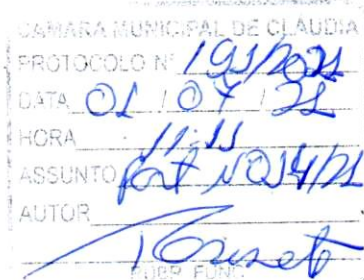 CAMARA MUNICIPAL DE CLAUDIA
PROTOCOLO Nº 191/2021
DATA 01 / 07 / 21
HORA 11:11
ASSUNTO Port Nº 014/21
AUTOR
RUBR. FUNC.